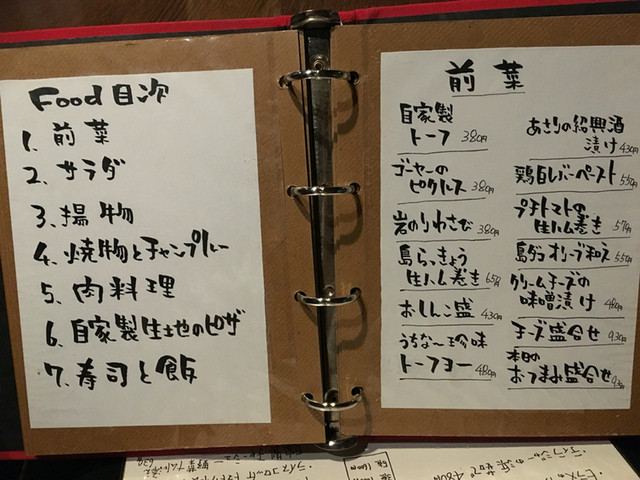 Food 目次
1. 前菜
2. サラダ
3. 揚物
4. 焼物とチャンプルー
5. 肉料理
6. 自家製生地のピザ
7. 寿司と飯
前菜
自家製
トーフ 380円
ゴーヤーの
ピクルス 380円
岩のりわさび 380円
島らっきょう
生ハム巻き 657円
おしんこ盛 430円
うちなー珍味
トーフヨー 480円
あさりの紹興酒
漬け 430円
鶏白レバーペースト 550円
プチトマトの
生ハム巻き 571円
島ダコオリーブ和え 550円
クリームチーズの
味噌漬け 480円
チーズ盛合せ 930円
本日の
おつまみ盛合せ